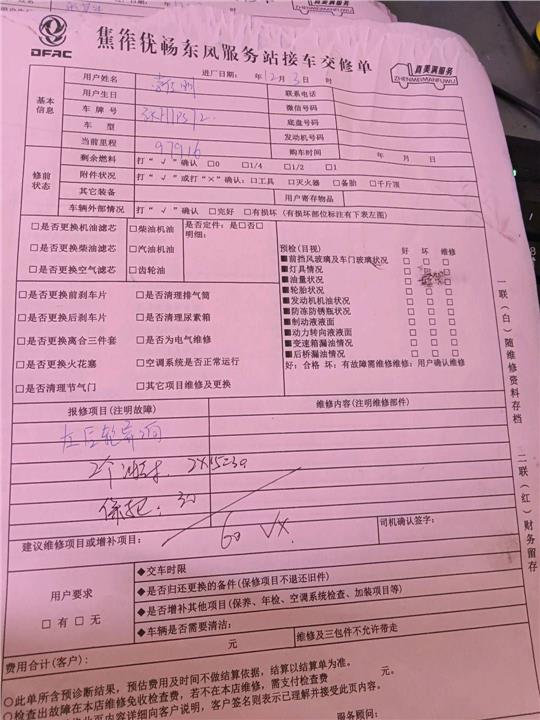 DFAC
焦作优畅东风服务站接车交修单
真美满服务
ZHENMEIMANFUWU
进厂日期: 年 2月 3日 时
基本信息
用户姓名
联系电话
用户生日
微信号码
车牌号
底盘号码
车型
发动机号码
当前里程 97916
购车时间 年 月 日
修前状态
剩余燃料 打“√”确认 □0 □1/4 □1/2 □1
附件状况 打“√”或打“×”确认:□工具 □灭火器 □备胎 □千斤顶
其它装备
用户寄存物品
车辆外部情况 打“√”确认 □完好 □有损坏 (有损坏部位标注有下表左图)
□是否更换机油滤芯 □柴油机油 是否定件:是□否□
明细:
□是否更换柴油滤芯 □汽油机油
□是否更换空气滤芯 □齿轮油
□是否更换前刹车片 □是否清理排气筒
□是否更换后刹车片 □是否清理尿素箱
□是否更换离合三件套 □是否为电气维修
□是否更换火花塞 □空调系统是否正常运行
□是否清理节气门 □其它项目维修及更换
预检(目视) 好 坏 维修
■前挡风玻璃及车门玻璃状况 □ □ □
■灯具情况 □ □ □
■油量状况 □
■轮胎状况 □ □ □
■发动机机油状况 □ □ □
■防冻防锈瓶状况 □ □ □
■制动液液面 □ □ □
■动力转向液液面 □ □ □
■变速箱漏油情况 □ □ □
■后桥漏油情况 □ □ □
好:合格 坏:有故障需维修维修:用户确认维修
报修项目(注明故障)
维修内容(注明维修部件)
左后轮异响
2个油封. 2×15=30
保养:30
60 √x.
建议维修项目或增补项目:
司机确认签字:
用户要求
□有 □无
◆交车时限
◆是否归还更换的备件(保修项目不退还旧件)
◆是否增补其他项目(保养、年检、空调系统检查、加装项目等)
◆车辆是否需要清洁:
费用合计(客户): 元
维修及三包件不允许带走
○此单所含预诊断结果,预估费用及时间不做结算依据,结算以结算单为准。
○检查出故障在本店维修免收检查费,若不在本店维修,需支付检查费 元。
此页内容详细向客户说明,客户签名则表示已理解并接受此页内容。
服务顾问:
一联(白)随维修资料存档
二联(红)财务留存